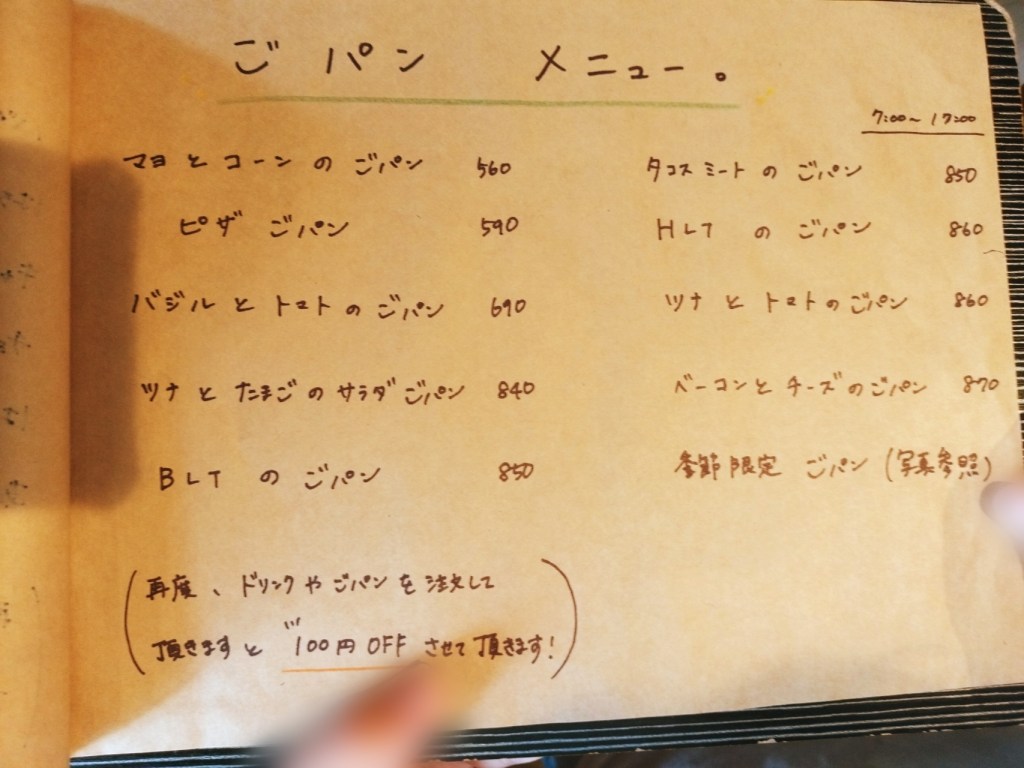 ごパン メニュー。
7:00〜17:00
マヨとコーンのごパン 560
ピザごパン 590
バジルとトマトのごパン 690
ツナとたまごのサラダごパン 840
BLTのごパン 850
タコスミートのごパン 850
HLTのごパン 860
ツナとトマトのごパン 860
ベーコンとチーズのごパン 870
季節限定 ごパン (写真参照)
(再度、ドリンクやごパンを注文して
頂きますと "100円OFF させて頂きます!)